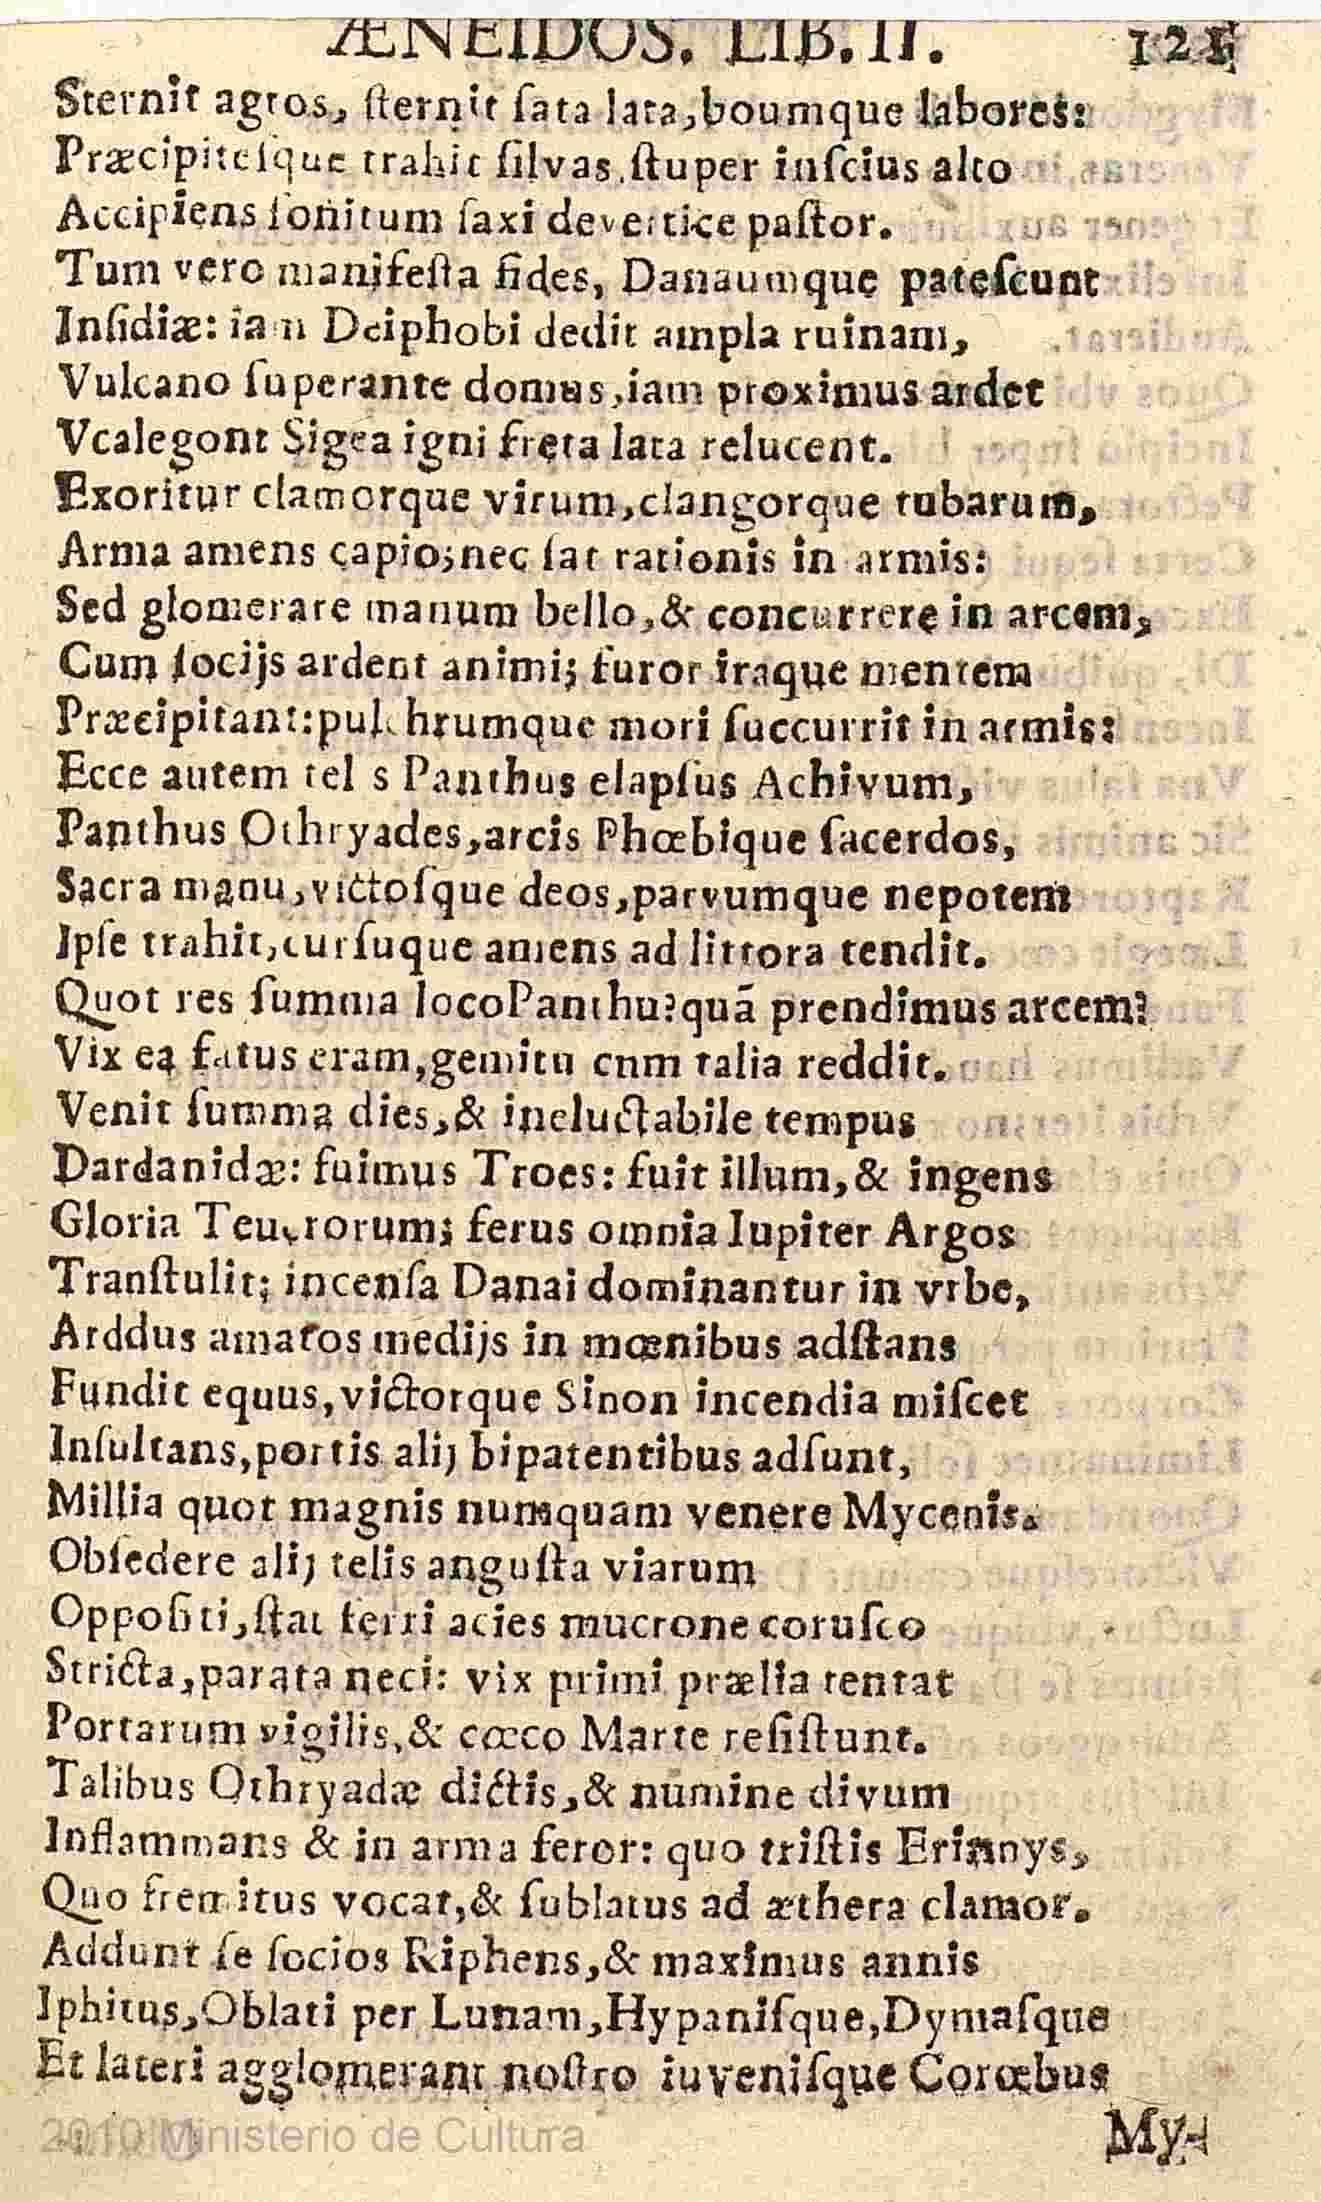 ÆNEIDOS. LIB. II. 121
Sternit agros, ſternit ſata lata,boumque labores:
Præcipiteſque trahit ſilvas,ſtuper inſcius alto
Accipiens ſonitum ſaxi devertice paſtor.
Tum vero manifeſta fides, Danaumque pateſcunt
Inſidiæ: iam Deiphobi dedit ampla ruinam,
Vulcano ſuperante domus,iam proximus ardet
Vcalegont Sigea igni freta lata relucent.
Exoritur clamorque virum,clangorque tubarum,
Arma amens capio;nec ſat rationis in armis:
Sed glomerare manum bello,& concurrere in arcem,
Cum ſocijs ardent animi; furor iraque mentem
Præcipitant:pulchrumque mori ſuccurrit in armis:
Ecce autem tel s Panthus elapſus Achivum,
Panthus Othryades,arcis Phœbique ſacerdos,
Sacra manu,victoſque deos,parvumque nepotem
Ipſe trahit,curſuque amens ad littora tendit.
Quot res ſumma locoPanthu?quã prendimus arcem?
Vix ea fatus eram,gemitu cnm talia reddit.
Venit ſumma dies,& ineluctabile tempus
Dardanidæ: fuimus Troes: fuit illum,& ingens
Gloria Teucrorum; ferus omnia Iupiter Argos
Tranſtulit; incenſa Danai dominantur in vrbe,
Arddus amatos medijs in mœnibus adſtans
Fundit equus,victorque Sinon incendia miſcet
Inſultans,portis alij bipatentibus adſunt,
Millia quot magnis numquam venere Mycenis.
Obſedere alij telis anguſta viarum
Oppoſiti,ſtat ferri acies mucrone coruſco
Stricta,parata neci: vix primi prælia tentat
Portarum vigilis,& cœco Marte reſiſtunt.
Talibus Othryadæ dictis,& numine divum
Inflammans & in arma feror: quo triſtis Erinnys,
Quo fremitus vocat,& ſublatus ad æthera clamor.
Addunt ſe ſocios Riphens,& maximus annis
Iphitus,Oblati per Lunam,Hypaniſque,Dymaſque
Et lateri agglomerant noſtro iuveniſque Corœbus
My-
2010 Ministerio de Cultura